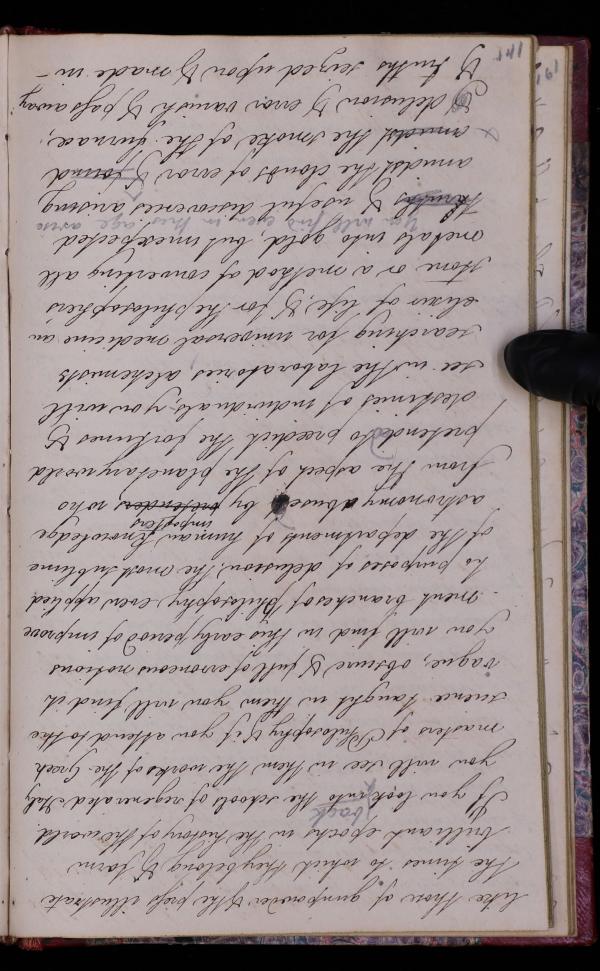 like those of gunpowder & the press illustrate
the times to which they belong & form
brilliant epochs in the history of the world
back
If you look into the schools of regenerated Italy
you will see in them the works of the Greek
masters of Philosophy & if you attend to the
science taught in them you will find it
vague, obscure & full of erroneous notions
You will find in this early period of improve
-ment branches of Philosophy even applied
to purposes of delusion; the most sublime
of the departments of human knowledge
impostors
astronomy abused by pretenders who
from the aspect of the planetary world
pretended to predict the fortunes &
destinies of individuals, you will
see in the laboratories alchemists
searching for universal medicine an
elixir of life, & for the philosophers
stone or a method of converting all
metals into gold, but unexpected
You will find even in this age
truths & useful discoveries arising
amidst the clouds of error &
amidst the smoke of the furnace;
delusion & error vanish & pass away
& truths seized upon & made in-
141
191